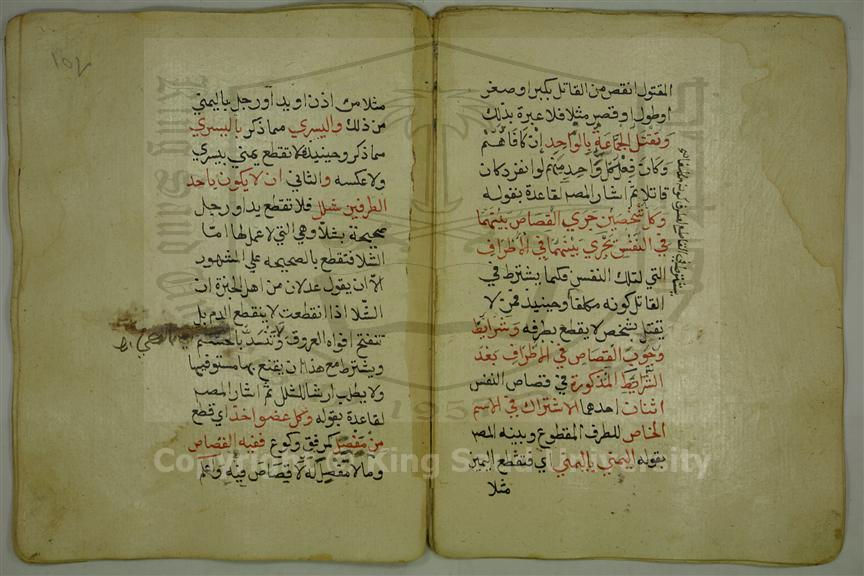 المقتول انقص من القاتل بكبر او صغر
او طول او قصر مثلا فلا عبرة بذلك
وتقتل الجماعة بالواحد إن كافأهم
وكان فعل كل واحد منهم لو انفرد كان
قاتلا ثم اشار المصـ لقاعدة بقوله
وكل شخصين جرى القصاص بينهما
في النفس يجري بينهما في الاطراف
التي لتلك النفس فكما يشترط في
القاتل كونه مكلفا وحينيذ فمن لا
يقتل بشخص لا يقطع بطرفه وشرايط
وجوب القصاص في الاطراف بعد
الشرايط المذكورة في قصاص النفس
اثنان احدهما الاشتراك في الاسم
الخاص للطرف المقطوع وبينه المصـ
بقوله اليمنى باليمنى اي فتقطع اليمين
مثلا
مثلا من اذن او يد او رجل باليمنى
من ذلك واليسرى مما ذكر باليسرى
مما ذكر وحينيذ فلا تقطع يمنى بيسرى
ولا عكسه والثاني ان لا يكون باحد
الطرفين شلل فلا تقطع يد او رجل
صحيحة بشلا وهي التي لا عمل لها اما
الشلا فتقطع بالصحيحه على المشهور
الا ان يقول عدلان من اهل الخبرة ان
الشلا اذا انقطعت لا ينقطع الدم بل
تنفتح افواه العروق ولا تنسد بالحسم
ويشترط مع هذا ان يقنع بها مستوفيها
ولا يطلب ارشا للشلل ثم اشار المصـ
لقاعدة بقوله وكل عضو اخذ اي قطع
من مفصل كمرفق وكوع ففيه القصاص
وما لا مفصل له لا قصاص فيه واعلم
Copyright © King Saud University
195